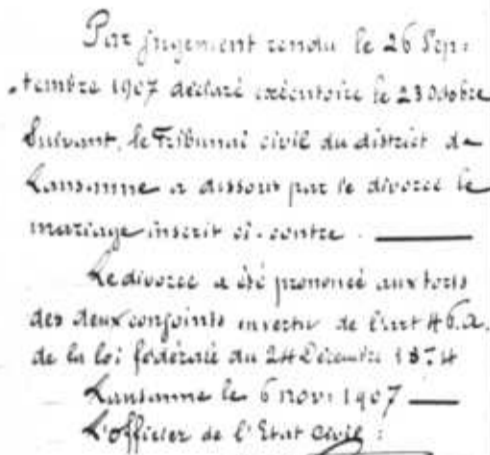 Par jugement rendu le 26 Sep-
tembre 1907 déclaré exécutoire le 23 Octobre
Suivant, le Tribunal civil du district de
Lausanne a dissous par le divorce le
mariage inscrit ci-contre.
Le divorce a été prononcé aux torts
des deux conjoints en vertu de l'art 46.a.
de la loi fédérale du 24 Décembre 1874
Lausanne le 6 nov. 1907
L'officier de l'Etat Civil :